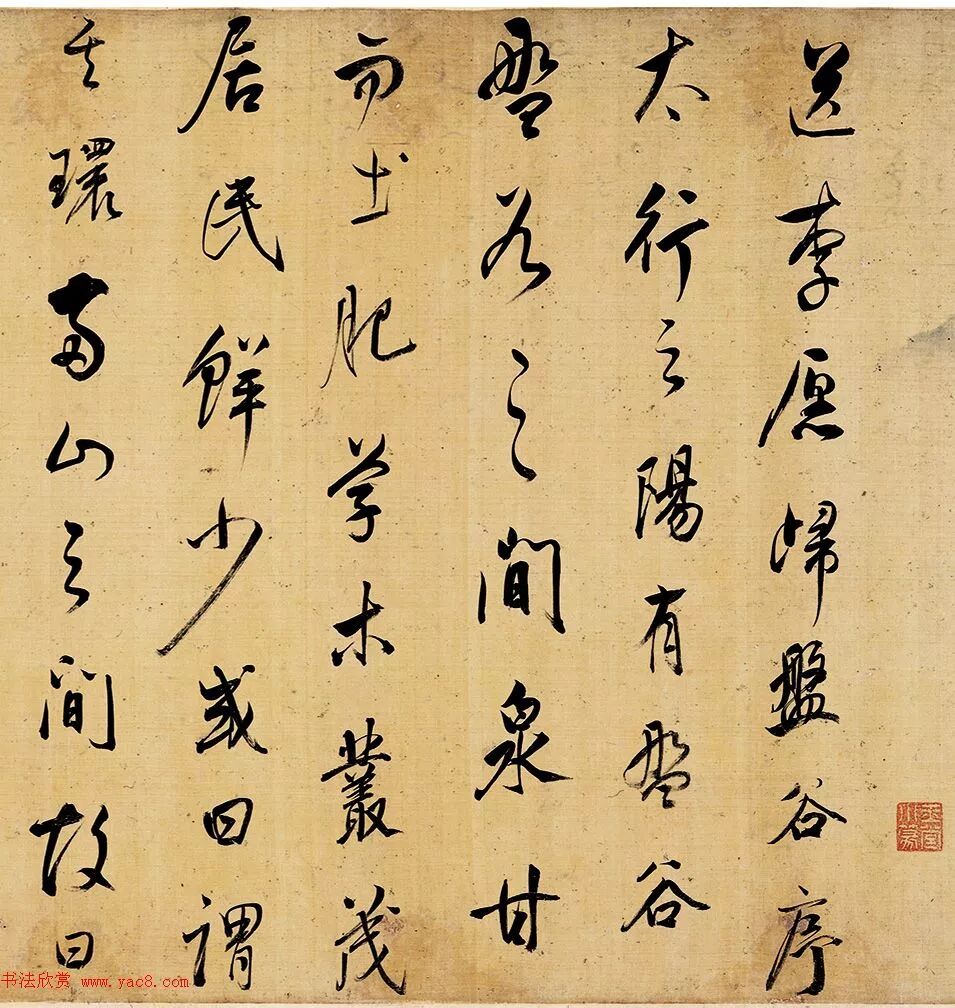 送李愿歸盤谷序
太行之陽有盤谷
盤谷之間泉甘
而土肥草木叢茂
居民鮮少或曰謂
其環兩山之間故曰
书法欣赏 www.yac8.com